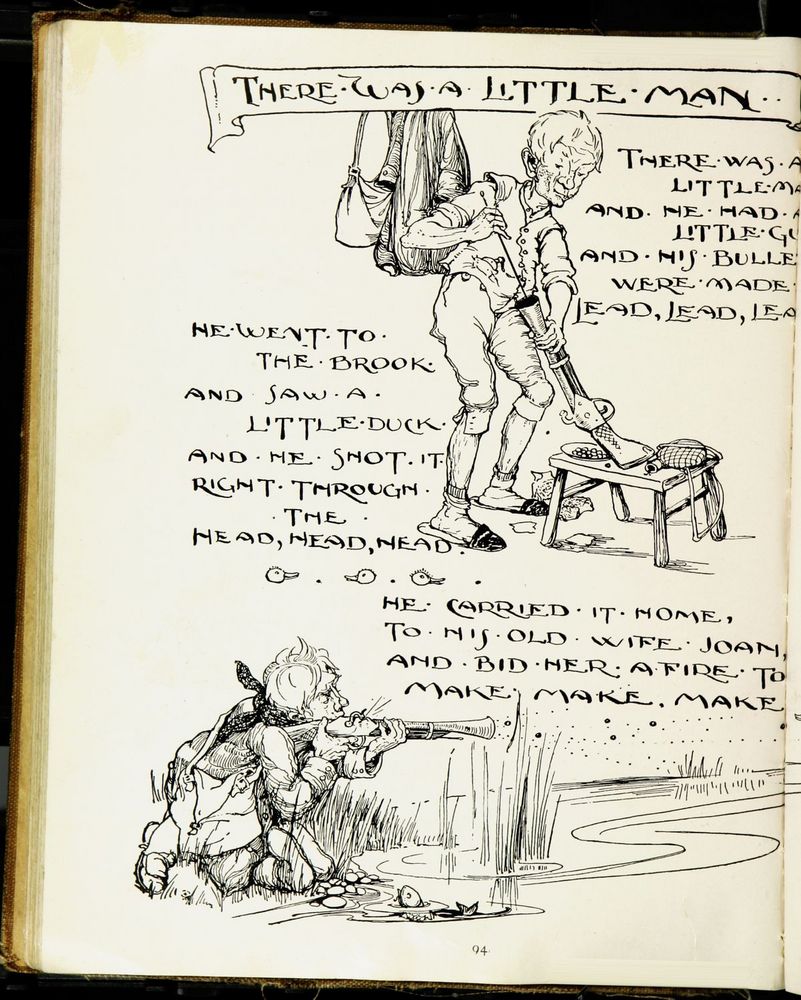 THERE · WAS · A · LITTLE · MAN · ·
THERE · WAS · A
LITTLE · MA
AND · HE · HAD · A
LITTLE · GU
AND · HIS · BULLE
WERE · MADE ·
LEAD, LEAD, LEA
HE · WENT · TO ·
THE · BROOK ·
AND SAW · A ·
LITTLE · DUCK ·
AND · HE · SHOT · IT
RIGHT · THROUGH ·
· THE ·
HEAD, HEAD, HEAD ·
HE · CARRIED · IT · HOME,
TO · HIS · OLD · WIFE · JOAN,
AND · BID · HER · A · FIRE · TO
MAKE, MAKE, MAKE
94